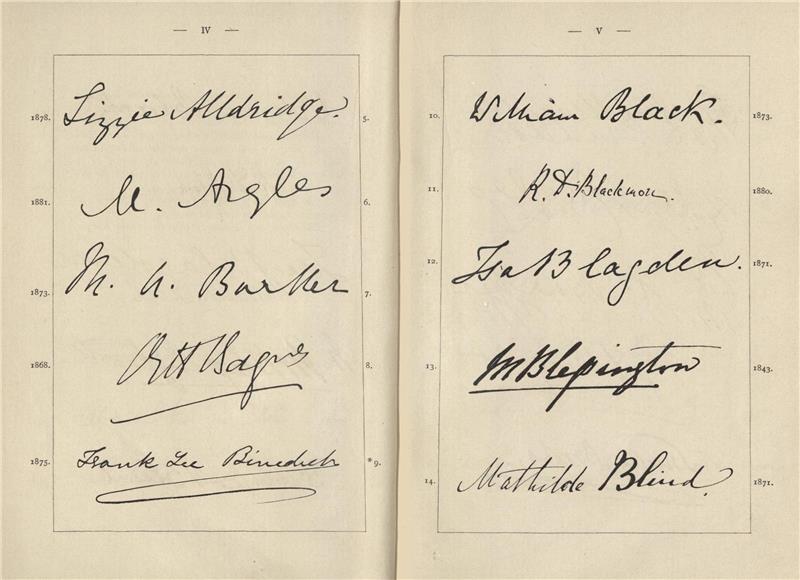 — IV —
1878. Lizzie Alldridge. 5.
1881. M. Argles 6.
1873. M. A. 7.
1868. 8.
1875. Frank Lee Benedict *9.
— V —
10. William Black. 1873.
11. R. D. Blackmore. 1880.
12. Isa Blagden. 1871.
13. 1843.
14. Mathilde Blind. 1871.